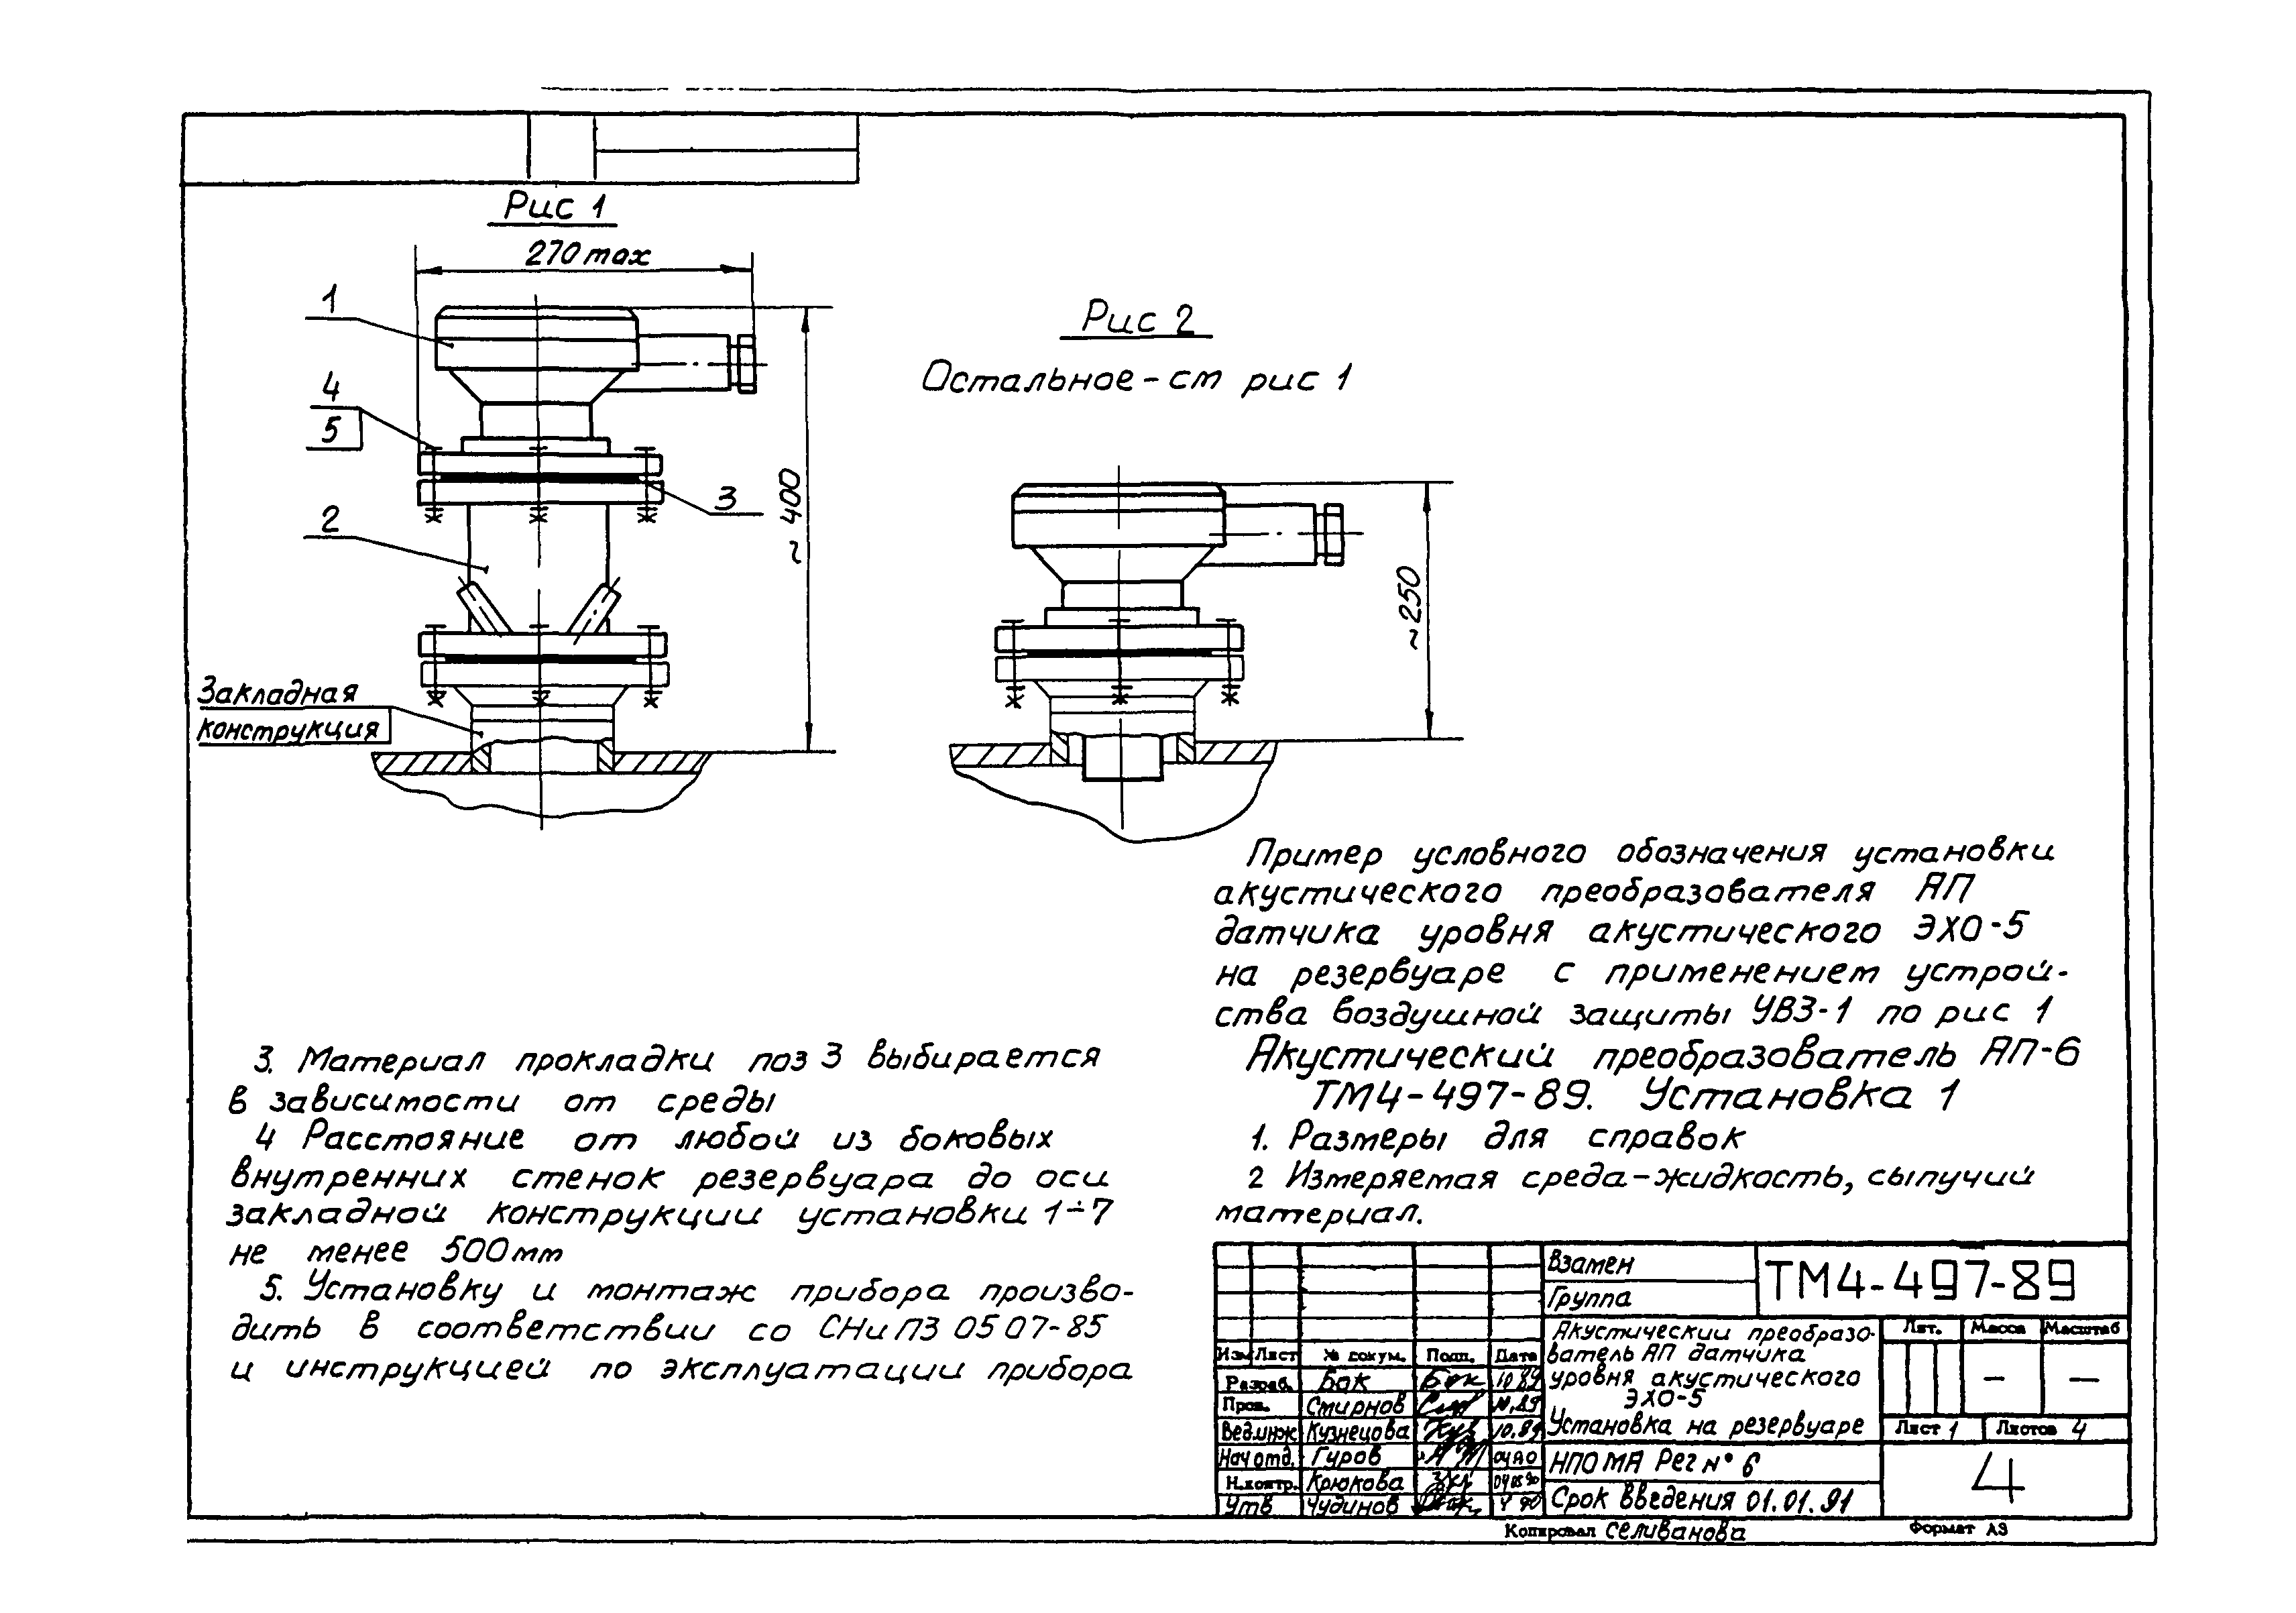 Рис 1
270 max
1
4
5
3
2
~400
Закладная
конструкция
Рис 2
Остальное - см рис 1
~250
Пример условного обозначения установки
акустического преобразователя АП
датчика уровня акустического ЭХО-5
на резервуаре с применением устрой-
ства воздушной защиты УВЗ-1 по рис 1
Акустический преобразователь АП-6
ТМ4-497-89. Установка 1
1. Размеры для справок
2 Измеряемая среда-жидкость, сыпучий
материал.
3. Материал прокладки поз 3 выбирается
в зависимости от среды
4 Расстояние от любой из боковых
внутренних стенок резервуара до оси
закладной конструкции установки 1÷7
не менее 500мм
5. Установку и монтаж прибора произво-
дить в соответствии со СНиП3 05 07-85
и инструкцией по эксплуатации прибора
Взамен
Группа
ТМ4-497-89
Изм Лист № докум. Подп. Дата
Разраб. Бак Бак 10.89
Пров. Смирнов
Вед.инж Кузнецова 10.89
Нач отд. Гуров
Н.контр. Крюкова
Утв Чудинов
Акустический преобразо-
ватель АП датчика
уровня акустического
ЭХО-5
Установка на резервуаре
Лит. Масса Масштаб
— —
Лист 1 Листов 4
НПО МА Рег № 6
Срок введения 01.01.91
4
Копировал Селиванова Формат А3